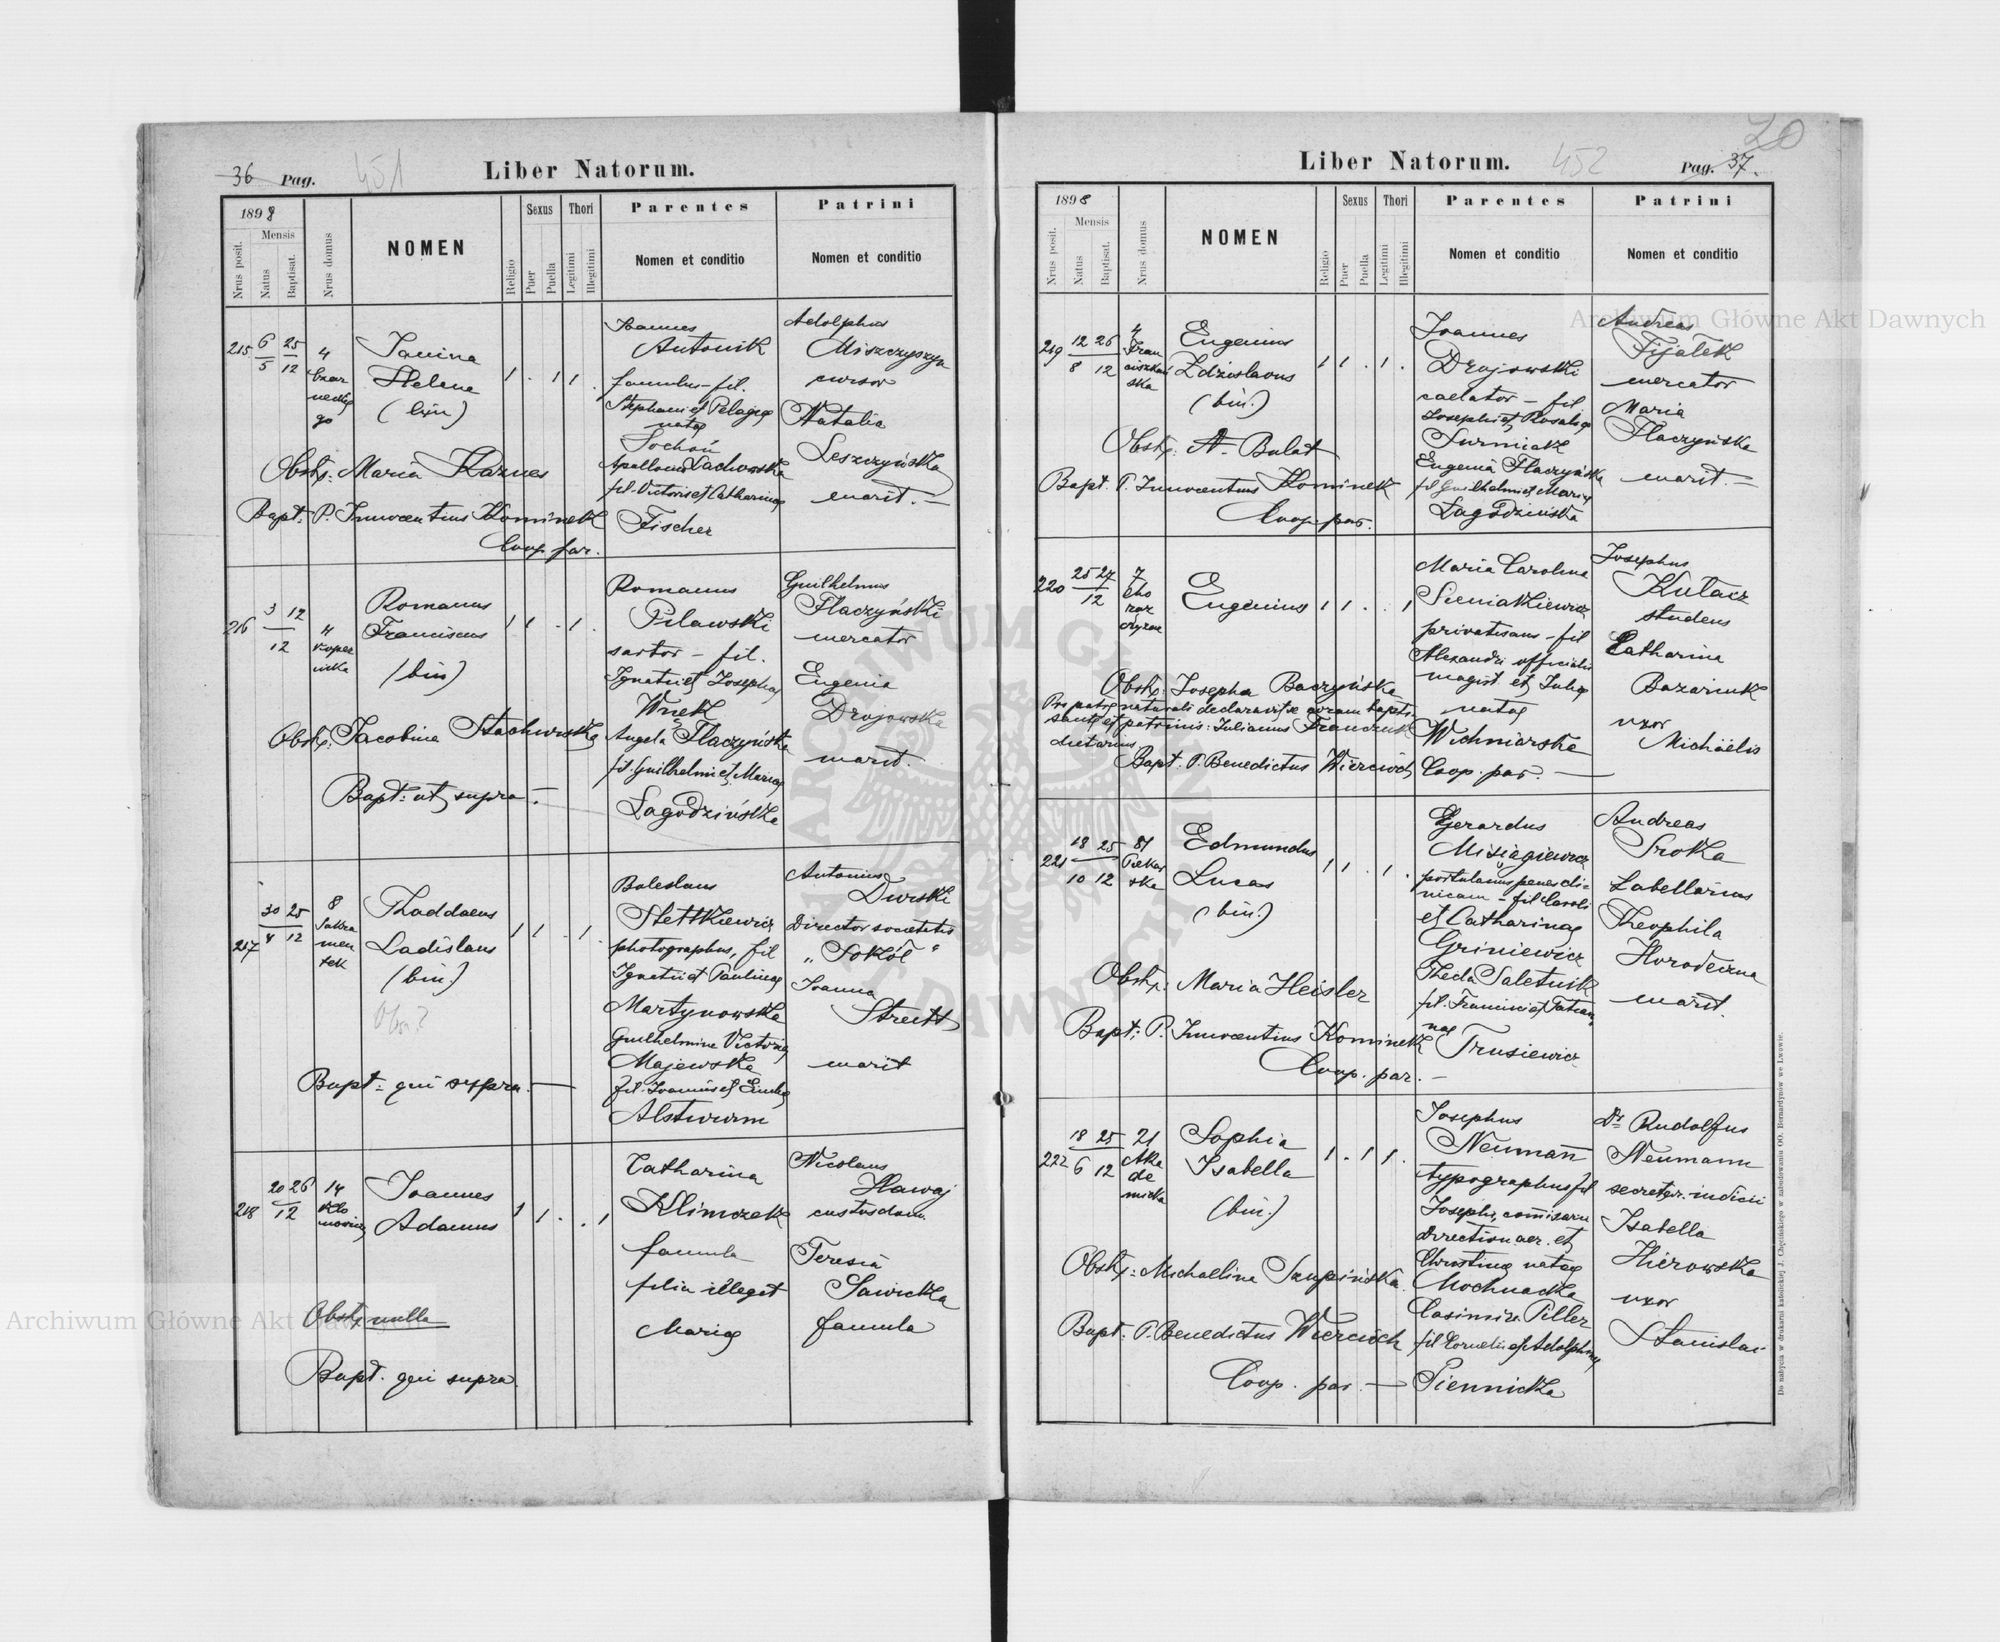 36 Pag. 451 Liber Natorum.
1898
Nrus posit.
Mensis
Natus
Baptisat.
Nrus domus
NOMEN
Religio
Sexus
Puer
Puella
Thori
Legitimi
Illegitimi
Parentes
Nomen et conditio
Patrini
Nomen et conditio
215 6/5 25/12 4
Czar
neckie
go
Janina
Helena
(bin)
1 . 1 1 .
Joannes
Antonik
famulus - fil.
Stephani et Pelagiae
natae
Sochoń
Apollonia Lachowska
fil. Victoris et Catharinae
Fischer
Adolphus
Miszczyszyn
cursor
Natalia
Leszczyńska
marit. —
Obst: Maria Kaznes
Bapt: P. Innocentius Kominek
Coop. par.
216 3 12
12
4
Koper
nicka
Romanus
Franciscus
(bin)
1 1 . 1 .
Romanus
Pilawski
sartor - fil.
Ignatii et Josephae
Wnęk
Angela Flaczyńska
fil. Guilhelmi et Mariae
Łagodzińska
Guilhelmus
Flaczyński
mercator
Eugenia
Drojowska
marit
Obst: Jacobina Stachurska
Bapt: ut supra —
217 30/4 25/12 8
Sakra
men
tek
Thaddaeus
Ladislaus
(bin.)
1 1 . 1 .
Boleslaus
Stettkiewicz
photographus, fil
Ignatii et Paulinae
Martynowska
Guilhelmina Victoria
Majewska
fil. Joannis et Emiliae
Alstwurm
Antonius
Durski
Director societatis
„ Sokół "
Joanna
Streitt
marit
Bapt: qui supra. —
218 20 26
12
14
Klo
nowicza
Joannes
Adamus
1 1 . . 1
Catharina
Klimczak
famula
filia illegit
Mariae
Nicolaus
Hawaj
custos dom.
Teresia
Sawicka
famula
Obst. nulla
Bapt. qui supra.
Liber Natorum. 452 Pag. 37.
20
1898
Nrus posit.
Mensis
Natus
Baptisat.
Nrus domus
NOMEN
Religio
Sexus
Puer
Puella
Thori
Legitimi
Illegitimi
Parentes
Nomen et conditio
Patrini
Nomen et conditio
219 12/8 26/12 4
Fran
ciszkań
ska
Eugenius
Zdzislaus
(bin.)
1 1 . 1 .
Joannes
Drojowski
caelator - fil
Josephi et Rosaliae
Surmiak
Eugenia Flaczyńska
fil Guilhelmi et Mariae
Łagodzińska
Andreas
Fijałek
mercator
Maria
Flaczyńska
marit. —
Obst: A. Bulat
Bapt. P. Innocentius Kominek
Coop. par.
220 25 27
12
7
Cho
rąż
czyzna
Eugenius
1 1 . . 1
Maria Carolina
Sieniatkiewicz
privatisans - fil
Alexandri officialis
magist. et Juliae
natae
Wichniarska
Josephus
Kułacz
studens
Catharina
Bazariuk
uxor
Michäelis
Obst: Josepha Baczyńska
Pro patre naturali declaravit se coram bapti-
sante et patrinis: Julianus Franczuk
dietarius
Bapt. P. Benedictus Wiercioch Coop. par. —
221 18/10 25/12 81
Piekar
ska
Edmundus
Lucas
(bin.)
1 1 . 1 .
Gerardus
Misiągiewicz
portulanus penes cli-
nicam - fil Caroli
et Catharinae
Griniewicz
Thecla Saletnik
fil. Francisci et Tatian-
nae
Trusiewicz
Andreas
Sroka
Tabellarius
Theophila
Horodeczna
marit.
Obst: Maria Heisler
Bapt: P. Innocentius Kominek
Coop. par. —
222 18/6 25/12 21
Aka
de
micka
Sophia
Isabella
(bin.)
1 . 1 1 .
Josephus
Neumann
typographus fil
Josephi, comisarii
direction. aer. et
Christinae natae
Mochnacka
Casimira Piller
fil Cornelii et Adolphinae
Piennicka
Dr Rudolfus
Neumann
secretar. iudicii
Isabella
Hierowska
uxor
Stanislai
Obst: Michaelina Szupińska.
Bapt: P. Benedictus Wiercioch
Coop. par. —
Do nabycia w drukarni katolickiej J. Chęcińskiego w zabudowaniu OO. Bernardynów we Lwowie.
Archiwum Główne Akt Dawnych
Archiwum Główne Akt Dawnych
ARCHIWUM GŁÓWNE AKT DAWNYCH